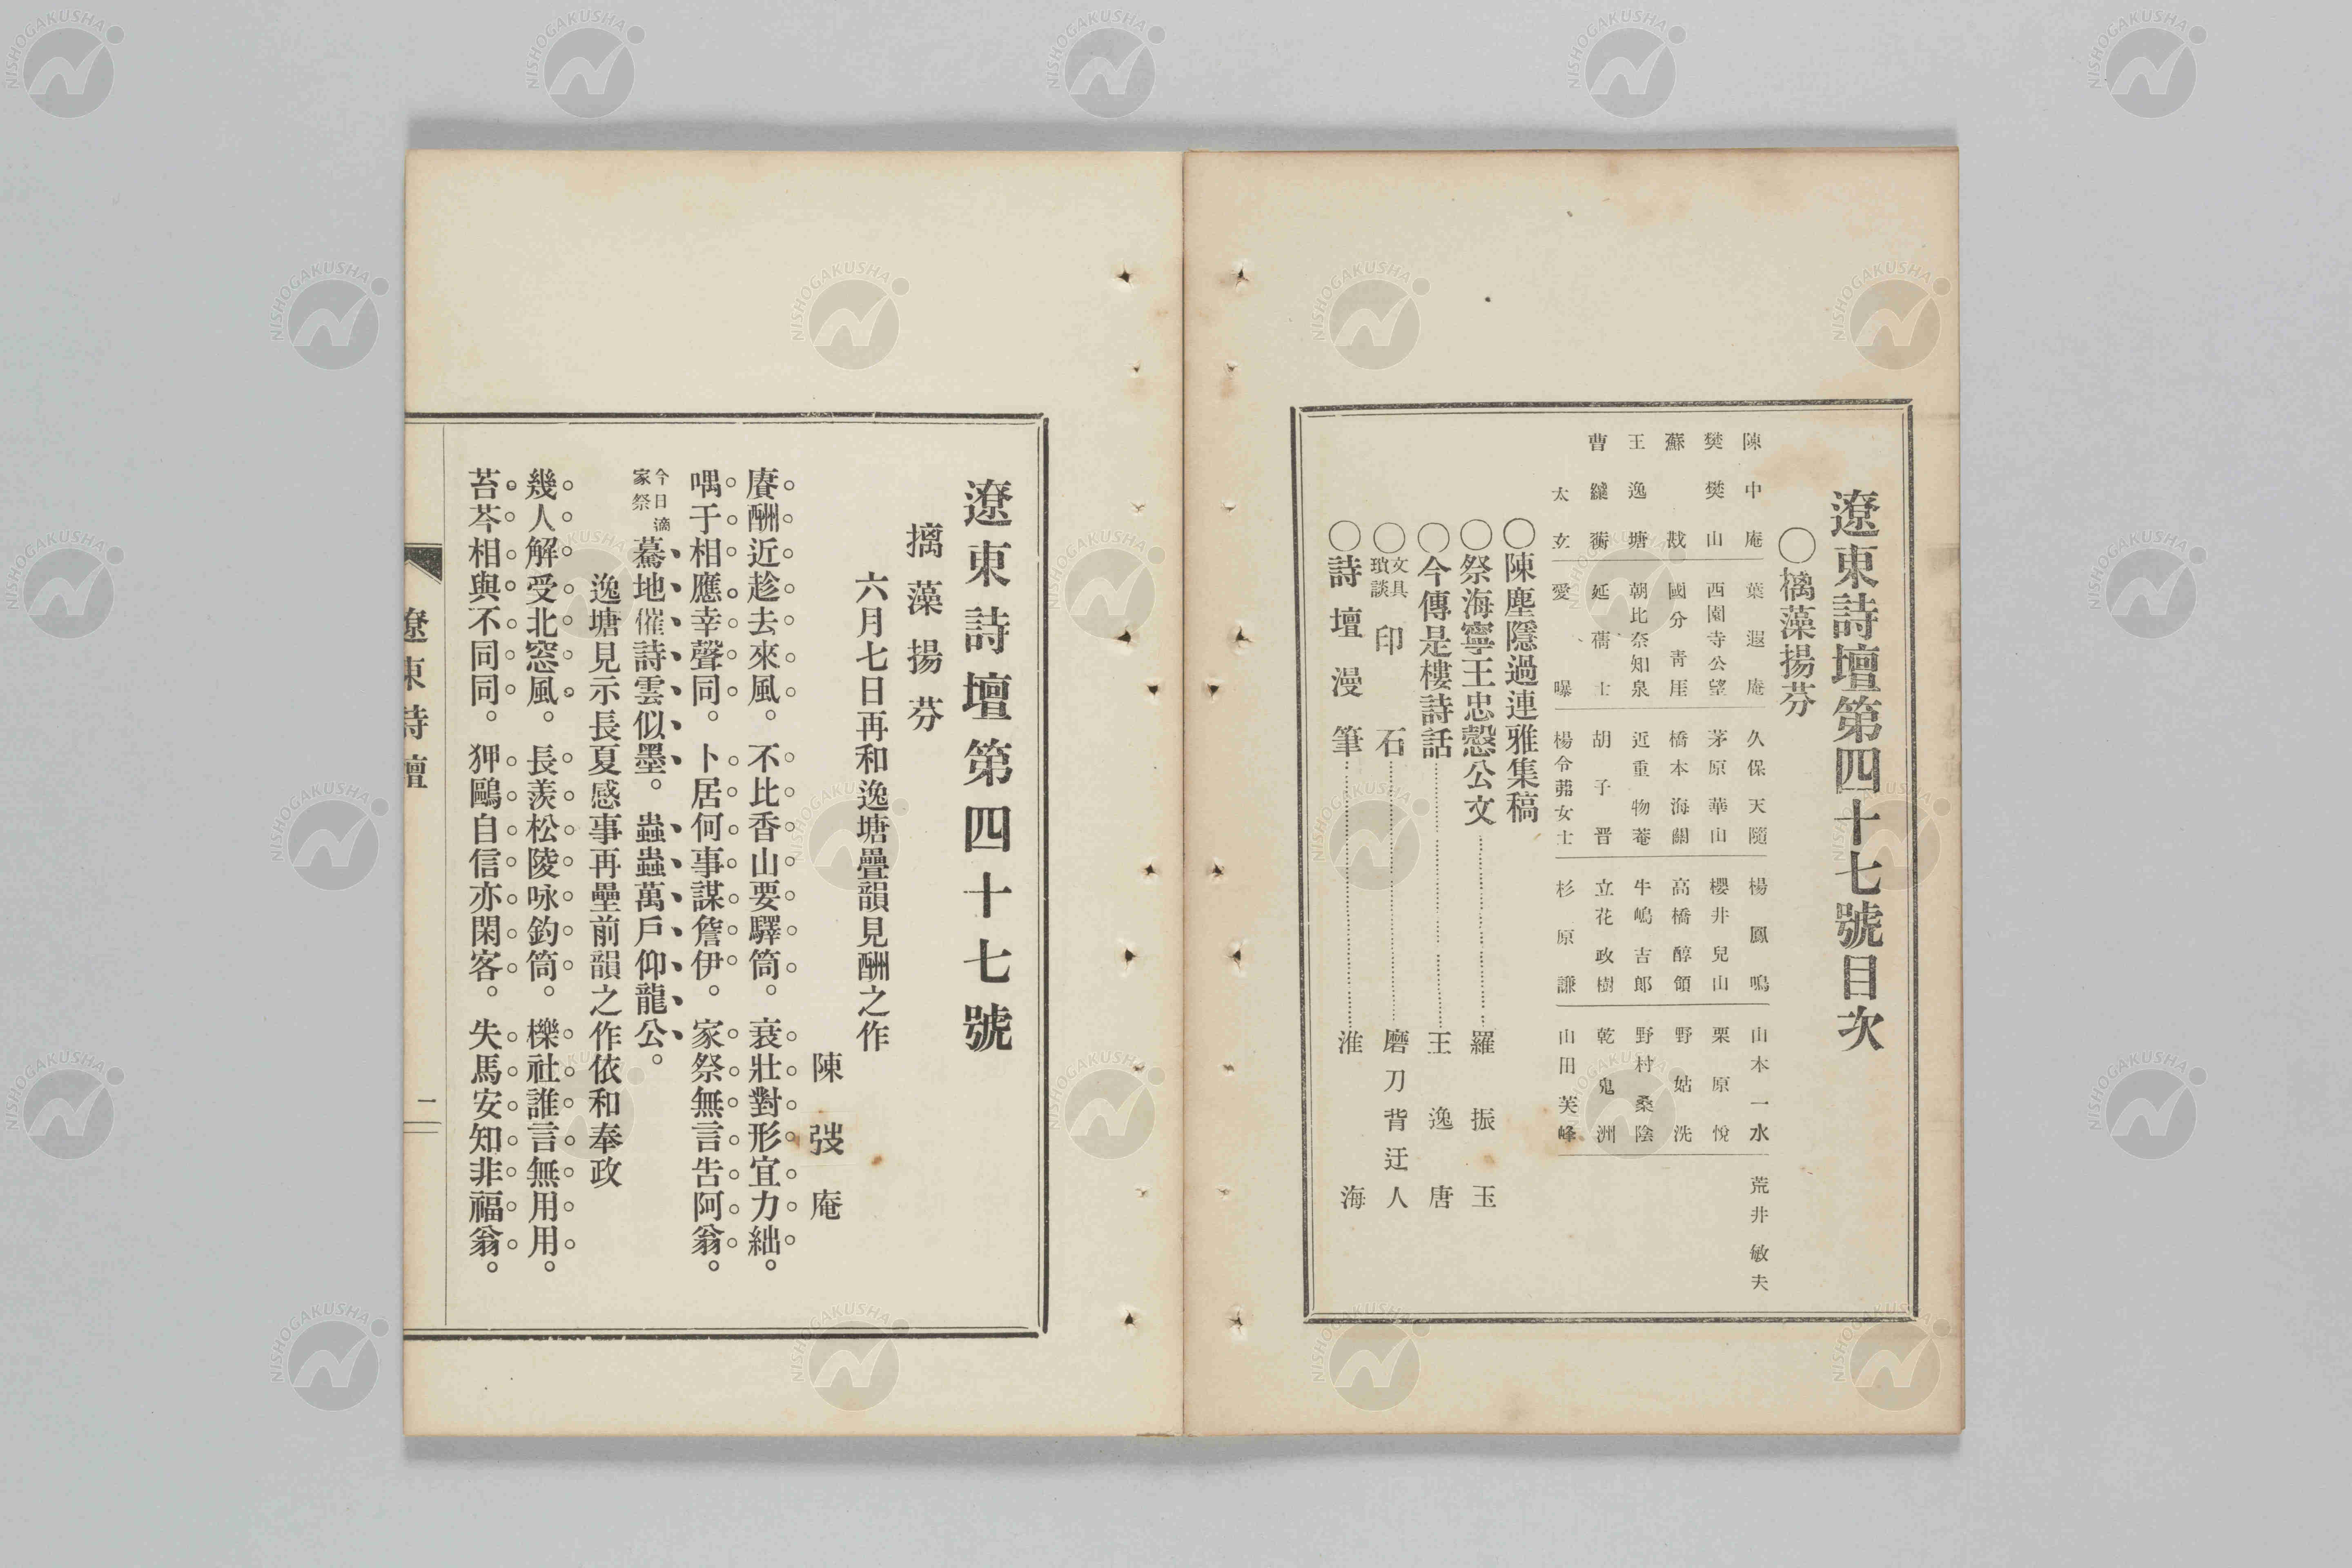 遼東詩壇第四十七號目次
〇樆藻揚芬
陳中庵 葉遐庵 久保天隨 楊鳳鳴 山本一水 荒井敏夫
樊樊山 西園寺公望 茅原華山 櫻井兒山 栗原悅
蘇戡 國分青厓 橋本海關 高橋醇領 野姑洗
王逸塘 朝比奈知泉 近重物菴 牛嶋吉郎 野村桑陰
曹纕蘅 延 士 胡子晋 立花政樹 乾鬼洲
太玄 愛曝 楊令茀女士 杉原謙 山田芙峰
〇陳塵隱過連雅集稿
〇祭海寧王忠慤公文 羅振玉
〇今傳是樓詩話 王逸唐
〇文具瑣談 印石 磨刀背迂人
〇詩壇漫筆 淮海
遼東詩壇第四十七號
摛藻揚芬
六月七日再和逸塘疊韻見酬之作
陳弢庵
賡酬近趁去來風。不比香山要驛筒。衰壯對形宜力絀。
喁于相應幸聲同。卜居何事謀詹伊。家祭無言告阿翁。
今日適家祭 驀地催詩雲似墨。蟲蟲萬戶仰龍公。
逸塘見示長夏感事再壘前韻之作依和奉政
幾人解受北窓風。長羨松陵咏釣筒。櫟社誰言無用用。
苔芩相與不同同。狎鷗自信亦閑客。失馬安知非福翁。
遼東詩壇
一
NISHOGAKUSHA